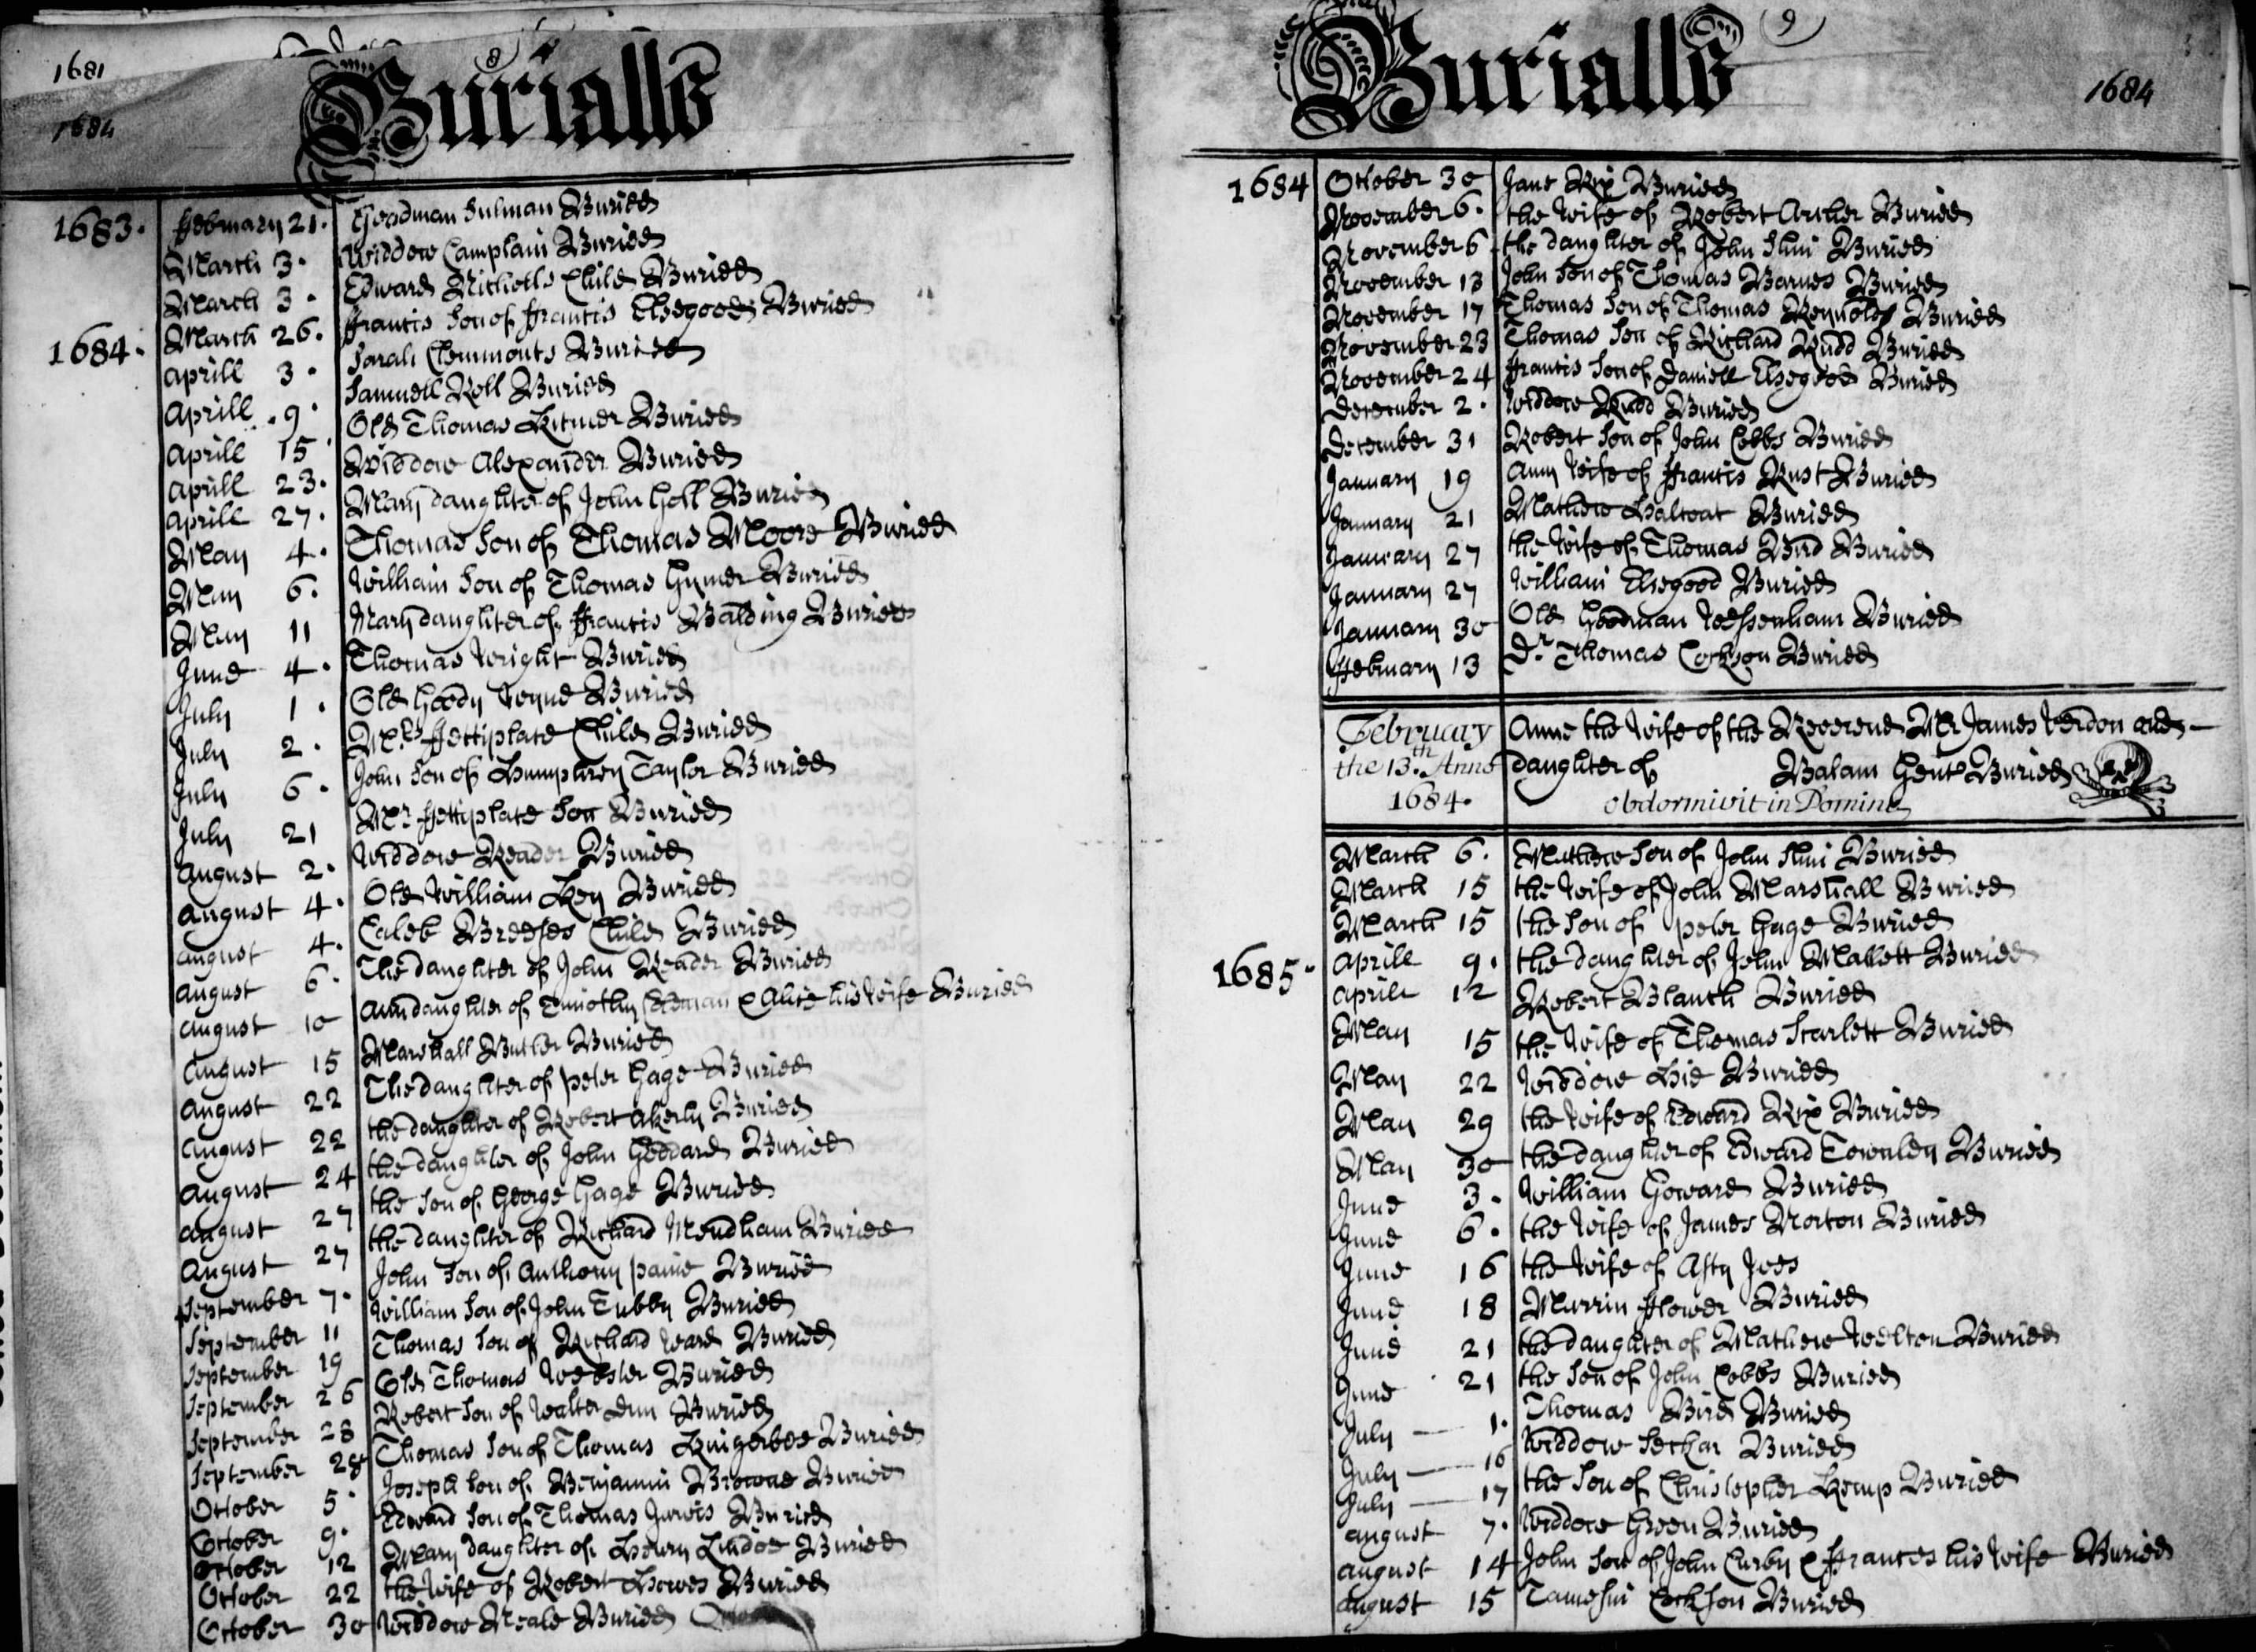 1681
1684
8
Burialls
1683. ffebruary 21. Goodman Sulman Buried
March 3. Widdow Camplain Buried
March 3. Edward Nicholls Child Buried
1684. March 26. ffrancis Son of ffrancis Elsegood Buried
Aprill 3. Sarah Clemmonts Buried
Aprill 9. Samuell Roll Buried
Aprill 15 Old Thomas Buried
Aprill 23. Widdow Alexander Buried
Aprill 27. Mary daughter of John Holl Buried
May 4. Thomas Son of Thomas Moore Buried
May 6. William Son of Thomas Gymer Buried
May 11 Mary daughter of ffrancis Balding Buried
June 4. Thomas Wright Buried
July 1. Old Goody Buried
July 2. Mrs ffettiplace Child Buried
July 6. John Son of Humphrey Taylor Buried
July 21 Mr ffettiplace Son Buried
August 2. Widdow Reader Buried
August 4. Old William Key Buried
August 4. Caleb Child Buried
August 6. The daughter of John Reader Buried
August 10 Ann daughter of Timothy & Alice his Wife Buried
August 15 Marshall Butler Buried
August 22 The daughter of Peter Gage Buried
August 22 the daughter of Robert Akerly Buried
August 24 the daughter of John Goddard Buried
August 27 the Son of George Gage Buried
August 27 the daughter of Richard Mendham Buried
September 7. John Son of Anthony Paine Buried
September 11 William Son of John Tubby Buried
September 19 Thomas Son of Richard Ward Buried
September 26 Old Thomas Webster Buried
September 28 Robert Son of Walter Buried
September 28 Thomas Son of Thomas Buried
October 5. Joseph Son of Benjamin Browne Buried
October 9. Edward Son of Thomas Jarvis Buried
October 12 Mary daughter of Henry Buried
October 22 the Wife of Robert Howes Buried
October 30 Widdow Neale Buried
Burialls
9
1684
1684 October 30 Jane Rix Buried
November 6. the Wife of Robert Archer Buried
November 6 the daughter of John Buried
November 13 John Son of Thomas Barnes Buried
November 17 Thomas Son of Thomas Reynolds Buried
November 23 Thomas Son of Richard Rudd Buried
November 24 ffrancis Son of Daniell Elsegood Buried
December 2. Widdow Rudd Buried
December 31 Robert Son of John Cobbs Buried
January 19 Ann Wife of ffrancis Rust Buried
January 21 Mathew Buried
January 27 the Wife of Thomas Bird Buried
January 27 William Elsegood Buried
January 30 Old Goodman Buried
ffebruary 13 Dr Thomas Cockson Buried
February Anne the Wife of the Reverend Mr James Verdon and
the 13.th Anno daughter of Balam Gent Buried
1684. obdormivit in Domino
March 6. Mathew Son of John Buried
March 15 the Wife of John Marshall Buried
March 15 the Son of Peter Gage Buried
1685. Aprill 9. the daughter of John Mallett Buried
Aprill 12 Robert Blanch Buried
May 15 the Wife of Thomas Scarlett Buried
May 22 Widdow Buried
May 29 the Wife of Edward Rix Buried
May 30 the daughter of Edward Townley Buried
June 3. William Howard Buried
June 6. the Wife of James Norton Buried
June 16 the Wife of
June 18 fflower Buried
June 21 the daughter of Mathew Welton Buried
June 21 the Son of John Cobbs Buried
July 1. Thomas Bird Buried
July 16 Widdow Buried
July 17 the Son of Christopher Kemp Buried
August 7. Widdow Green Buried
August 14 John Son of John Curby & ffrances his Wife Buried
August 15 Cockson Buried